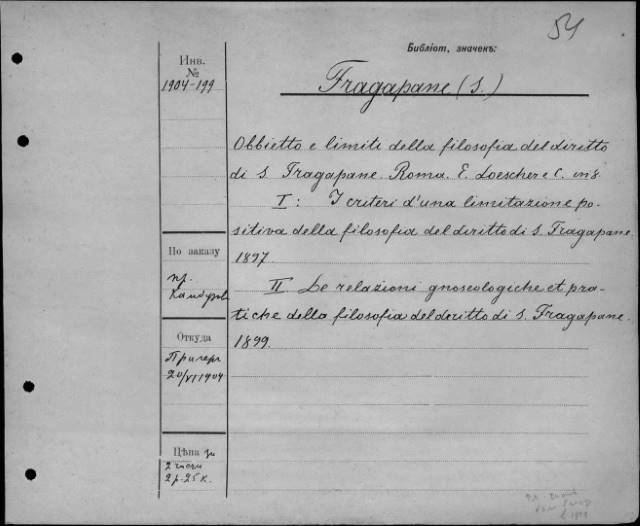 54
Библіот. значекъ:
Инв.
№
1904-199
Fragapane (S.)
Obbietto e limiti della filosofia del diritto
di S. Fragapane. Roma. E. Loescher e C. in 8
I: I criteri d'una limitazione po-
sitiva della filosofia del diritto di S. Fragapane.
1897
II. Le relazioni gnoseologiche et pra-
tiche della filosofia del diritto di S. Fragapane.
1899.
По заказу
пр.
Откуда
20/VI 1904
Цѣна за
2 части
2 р. 25 к.